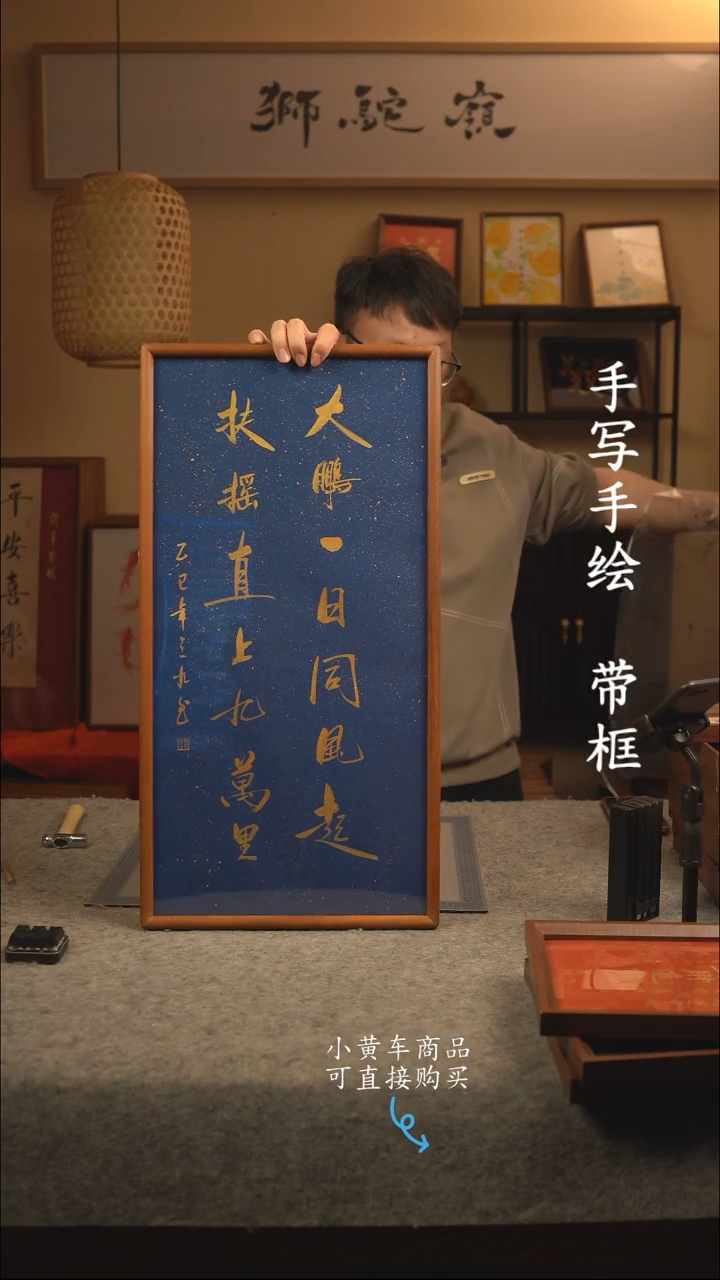 獅駝嶺
大鵬一日同風起
扶搖直上九萬里
乙巳年三九书
平安喜樂
手写手绘 带框
小黄车商品
可直接购买